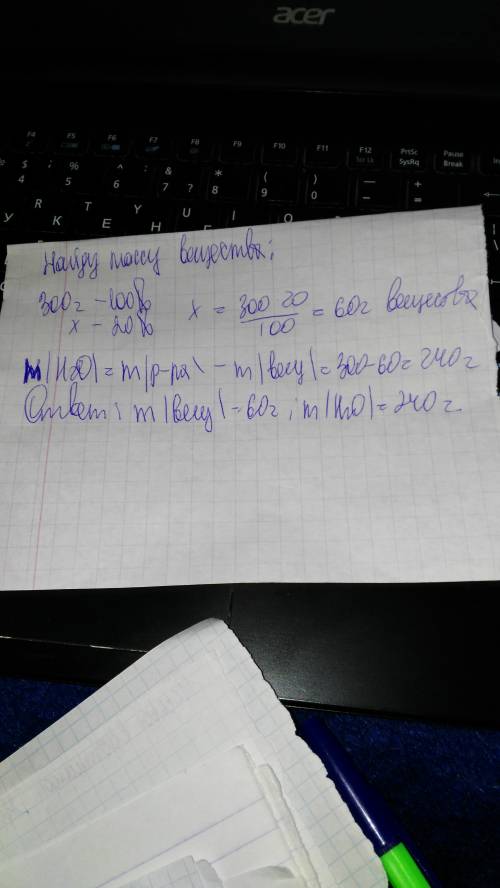 acer
F4 F5 F6 F7 F8 F9 F10 F11 F12 PrtSc Pause
Scr Lk SysRq Break
$ 4 ; % 5 ^ : 6 & ? 7 * 8 ( 9 ) 0 — - + =
R T Y U I
У К Е Н
Найду массу вещества:
300г - 100%
x - 20%
x = 300 20 / 100 = 60г вещества
m(H2O) = m(р-ра) - m(вещ) = 300-60 = 240г
Ответ: m(вещ) = 60г; m(H2O) = 240г.